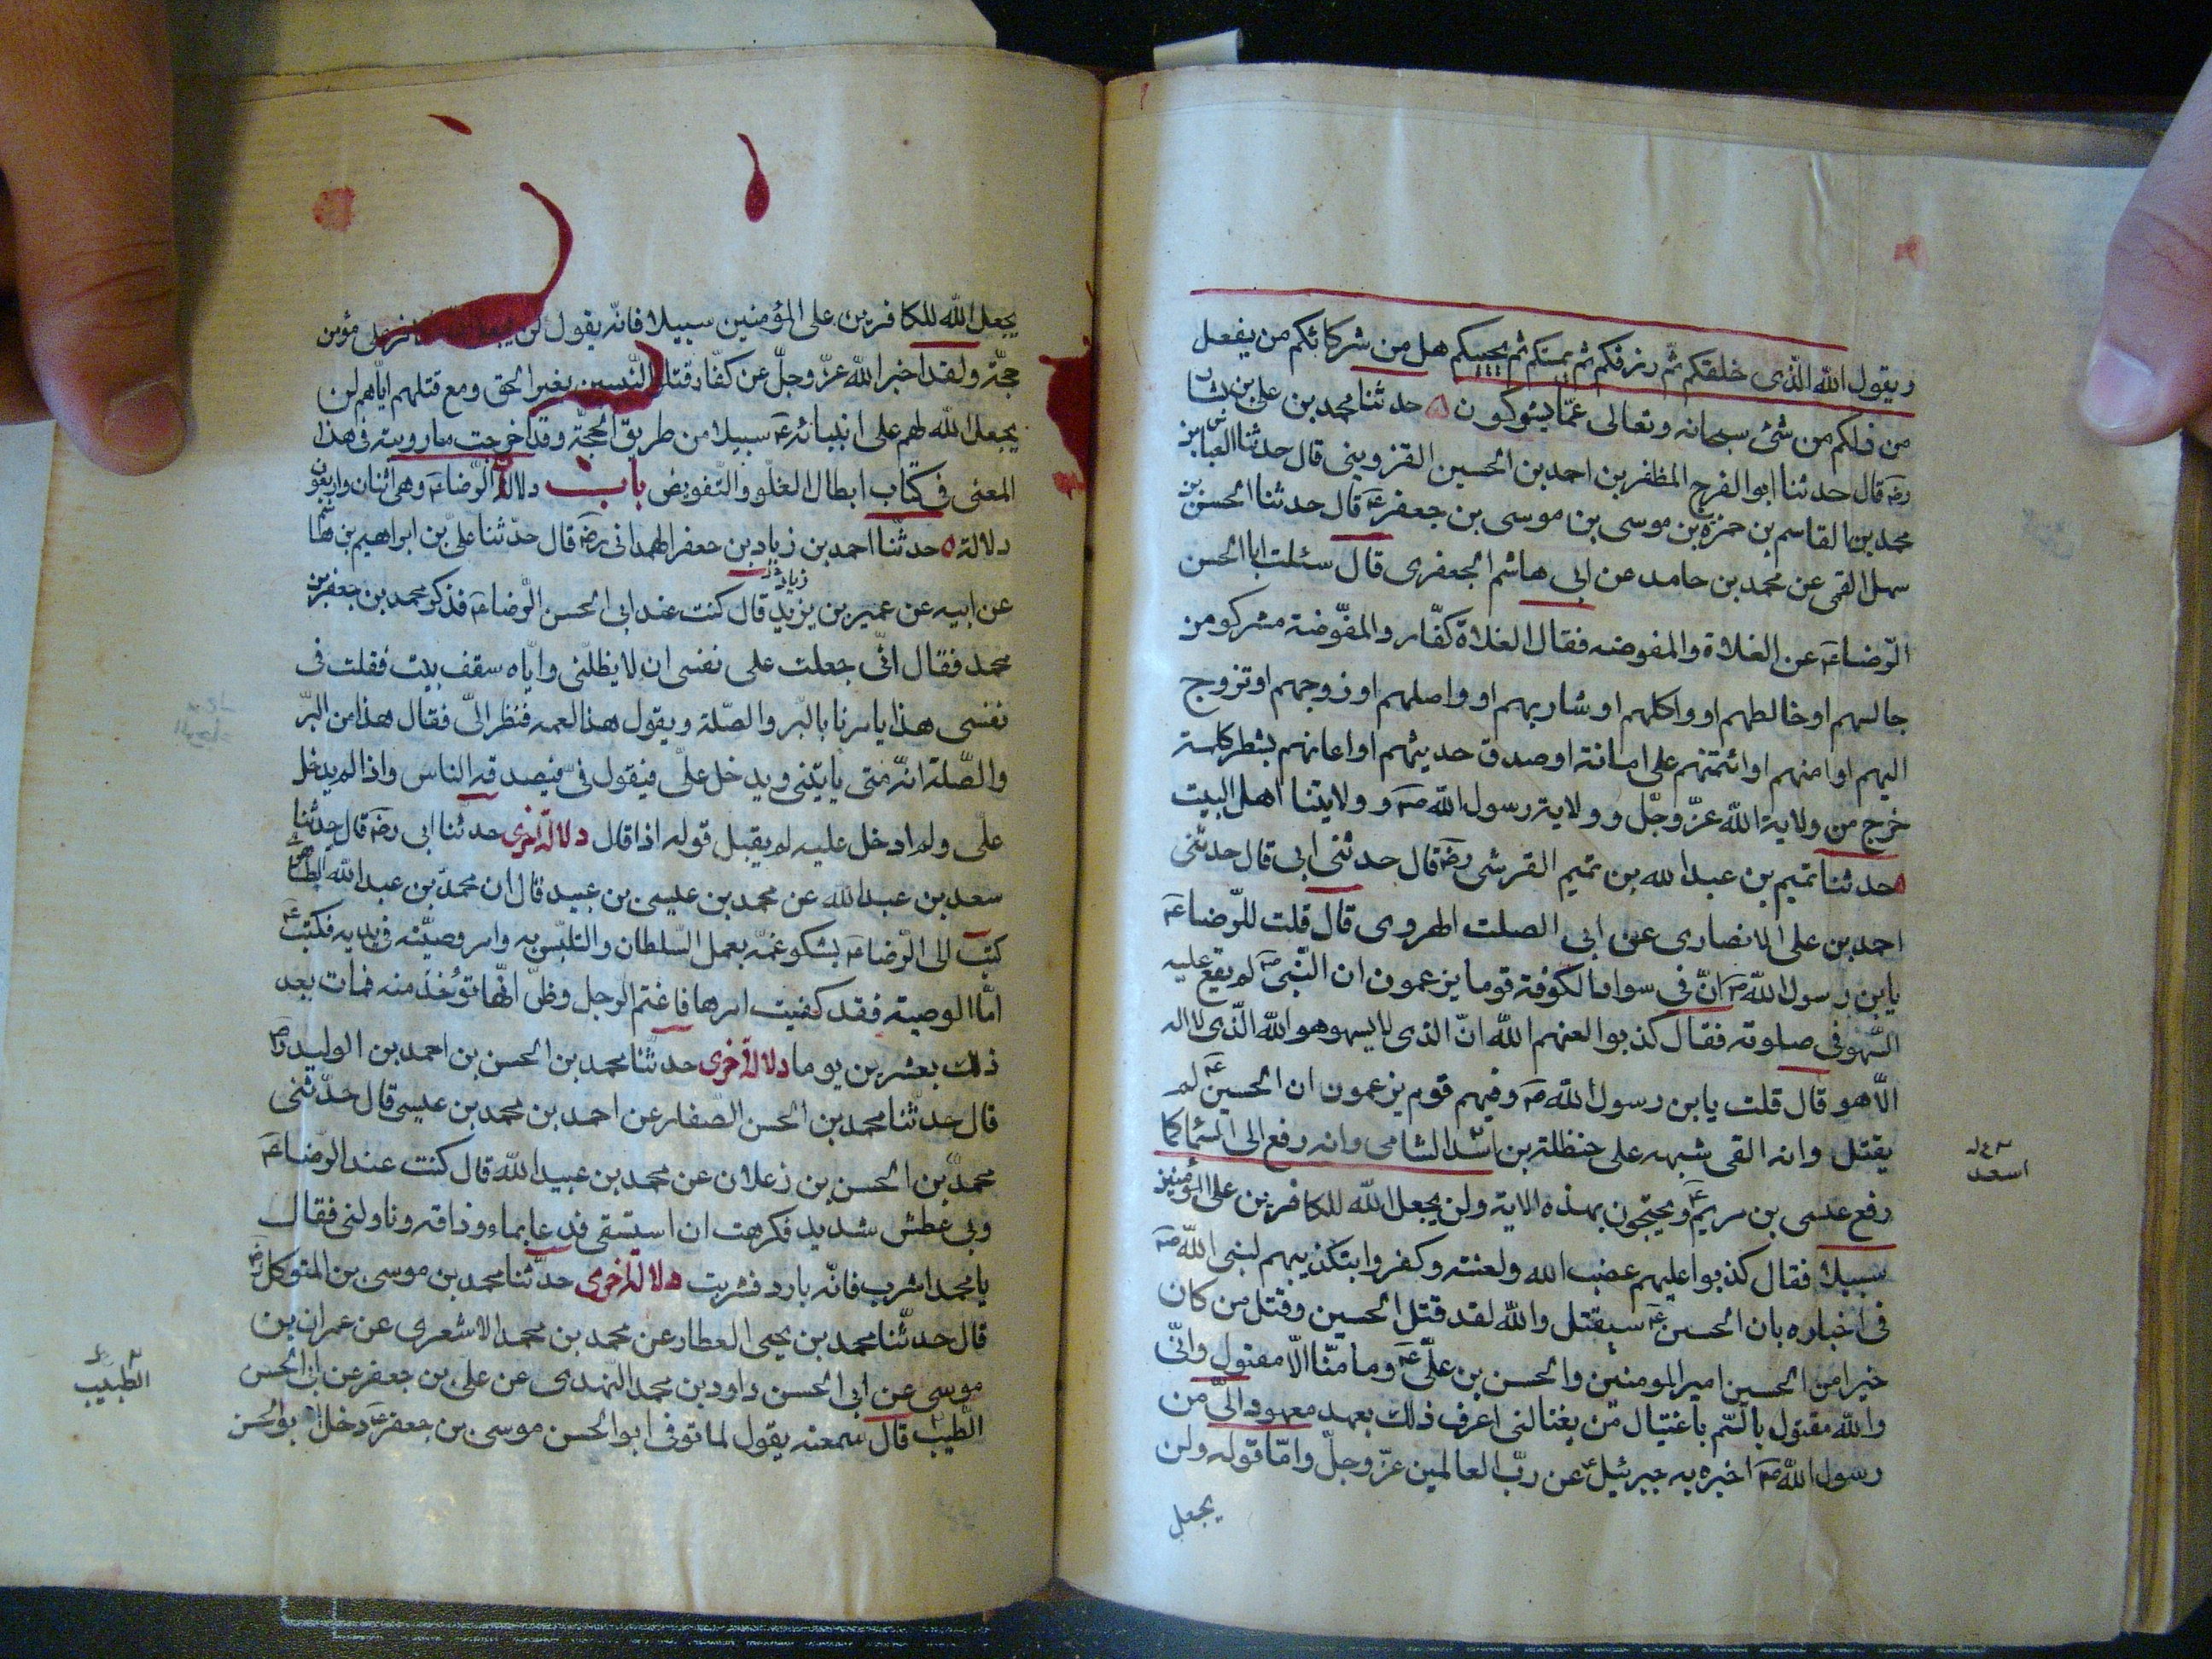 ويقول الله الذى خلقكم ثم رزقكم ثم يميتكم ثم يحييكم هل من شركائكم من يفعل
من ذلكم من شئ سبحانه وتعالى عمّا يشركون حدثنا محمد بن على بن بشار
رضه قال حدثنا ابو الفرج المظفر بن احمد بن الحسين القزوينى قال حدثنا العباس بن
محمد بن القاسم بن حمزة بن موسى بن جعفر ع قال حدثنا الحسن بن
سهل القمى عن محمد بن حامد عن ابى هاشم الجعفرى قال سئلت ابا الحسن
الرّضا ع عن الغلاة والمفوضه فقال الغلاة كفّار والمفوّضة مشركو من
جالسهم او خالطهم او واكلهم او شاربهم او واصلهم او زوجهم او تزوج
اليهم او امنهم او ائتمنهم على امانة او صدق حديثهم او اعانهم بشطر كلمة
خرج من ولاية الله عزّ وجلّ وولاية رسول الله ص وولايتنا اهل البيت
حدثنا تميم بن عبد الله بن تميم القرشى رضه قال حدثنى ابى قال حدثنى
احمد بن على الانصارى عن ابى الصلت الهروى قال قلت للرّضا ع
يابن رسول الله ص انّ فى سواد الكوفة قوما يزعمون ان النّبى ص لم يقع عليه
السّهو فى صلوته فقال كذبوا لعنهم الله انّ الذى لا يسهو هو الله الّذى لا اله
الّا هو قال قلت يابن رسول الله ص وفيهم قوم يزعمون ان الحسين ع لم
يقتل وانه القى شبهه على حنظلة بن اسد الشامى وانه رفع الى السّماء كما
اسعد
رفع عيسى بن مريم ع ويحتجون بهذه الاية ولن يجعل الله للكافرين على المؤمنين
سبيلا فقال كذبوا عليهم غضب الله ولعنته وكفروا بتكذيبهم لنبى الله ص
فى اخباره بان الحسين ع سيقتل والله لقد قتل الحسين وقتل من كان
خيرا من الحسين امير المومنين والحسن بن علىّ ع وما منّا الّا مقتول وانّى
والله مقتول بالسّم باغتيال من يغتالنى اعرف ذلك بعهد معهود الىّ من
رسول الله ص اخبره به جبرئيل ع عن ربّ العالمين عزّ وجلّ وامّا قوله ولن
يجعل
يجعل الله للكافرين على المؤمنين سبيلا فانّه يقول لن على مؤمن
حجّة ولقد اخبر الله عزّ وجلّ عن كفّار قتلوا النّبيين بغير الحق ومع قتلهم ايّاهم لن
يجعل الله لهم على انبيائه ع سبيلا من طريق الحجّة وقد اخرجت ما رويته فى هذا
المعنى فى كتاب ابطال الغلو والتّفويض باب دلالة الرّضا ع وهى اثنان واربعون
دلالة حدثنا احمد بن زياد بن جعفر الهمدانى رضه قال حدّثنا علىّ بن ابراهيم بن هاشم
زياد
عن ابيه عن عمير بن يزيد قال كنت عند ابى الحسن الرّضا ع فذكر محمد بن جعفر بن
محمد فقال انّى جعلت على نفسى ان لا يظلّنى وايّاه سقف بيت فقلت فى
نفسى هذا يامرنا بالبّر والصّلة ويقول هذا لعمه فنظر الىّ فقال هذا من البرّ
والصّلة انّه متى ياتينى ويدخل علىّ فيقول فىّ فيصدقه الناس واذا لم يدخل
علىّ ولم ادخل عليه لم يقبل قوله اذا قال دلالة اخرى حدثنا ابى رضه قال حدثنا
سعد بن عبد الله عن محمد بن عيسى بن عبيد قال ان محمد بن عبد الله الطاهرى
كتب الى الرّضا ع يشكو عمّه بعمل السّلطان والتلبّس به وامر وصيّته فى يديه فكتب ع
امّا الوصية فقد كفيت امرها فاغتم الرجل وظنّ انّها تؤخذ منه فمات بعد
ذلك بعشرين يوما دلالة اخرى حدثنا محمد بن الحسن بن احمد بن الوليد رضه
قال حدثنا محمد بن الحسن الصّفار عن احمد بن محمد بن عيسى قال حدّثنى
محمدّ بن الحسن بن زعلان عن محمد بن عبيد الله قال كنت عند الرّضا ع
وبى عطش شديد فكرهت ان استسقى فدعا بماء وذاقه وناولنى فقال
يا محمد اشرب فانّه بارد فشربت دلالة اخرى حدّثنا محمد بن موسى بن المتوكل رضه
قال حدّثنا محمد بن يحيى العطار عن محمد بن محمد الاشعرى عن عمران بن
موسى عن ابى الحسن داود بن محمد النّهدى عن على بن جعفر عن ابى الحسن
الطّيب قال سمعته يقول لما توفى ابو الحسن موسى بن جعفر ع دخل ابو الحسن
الطبيب